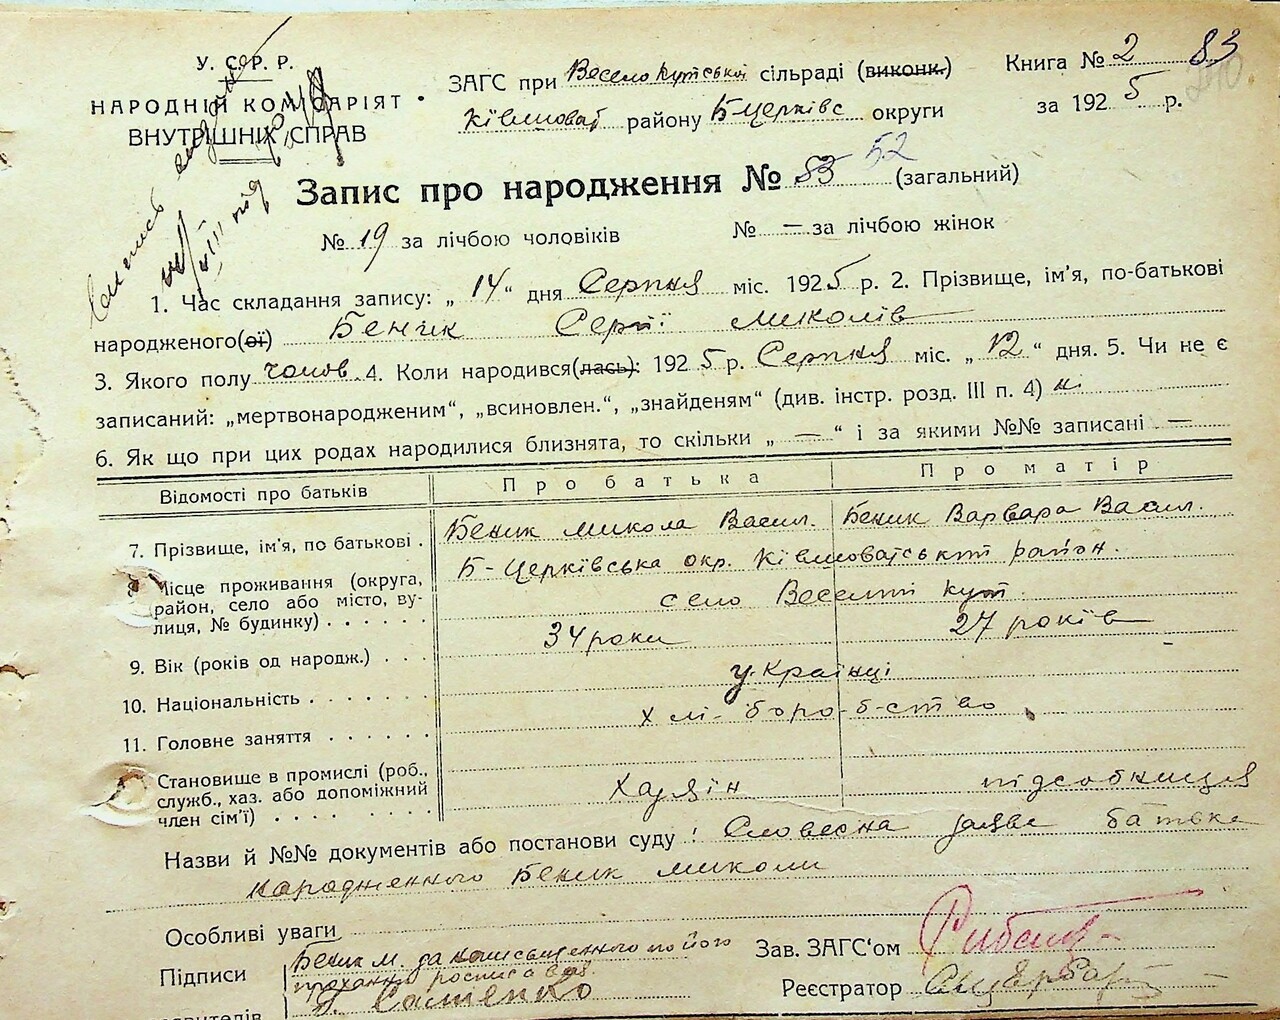 У. С. Р. Р.
НАРОДНІЙ КОМІСАРІЯТ
ВНУТРІШНІХ СПРАВ
ЗАГС при Веселокутській сільраді (виконк.)
Ківшоват району Б-Церківс округи
Книга № 2 83
за 1925 р.
Запис про народження № 53 52 (загальний)
№ 19 за лічбою чоловіків № — за лічбою жінок
1. Час складання запису: „ 14 “ дня Серпня міс. 1925 р. 2. Прізвище, ім'я, по-батькові
народженого(ої) Беник Сергії Миколів
3. Якого полу чолов. 4. Коли народився(лась): 1925 р. Серпня міс. „ 12 “ дня. 5. Чи не є
записаний: „мертвонародженим“, „всиновлен.“, „знайденям“ (див. інстр. розд. III п. 4) ні
6. Як що при цих родах народилися близнята, то скільки „ — “ і за якими №№ записані —
Відомості про батьків Про батька Про матір
7. Прізвище, ім'я, по батькові . Беник Микола Васил. Беник Варвара Васил.
8. Місце проживання (округа, Б-Церківська окр. Ківшоватський район.
район, село або місто, ву- село Веселий кут.
лиця, № будинку) . . . . . .
9. Вік (років од народж.) . . . 34 роки 27 років
10. Національність . . . . . . . українці
11. Головне заняття . . . . . . хлі-боро-б-ство
Становище в промислі (роб.,
служб., хаз. або допоміжний Хазяін підсобниця
член сім'ї) . . . . . . . . .
Назви й №№ документів або постанови суду : Словесна заява батька
народженного Беник Миколи
Особливі уваги
Підписи Беник М. да неписьменного по його
проханню росписався
Зав. ЗАГС'ом
Реєстратор